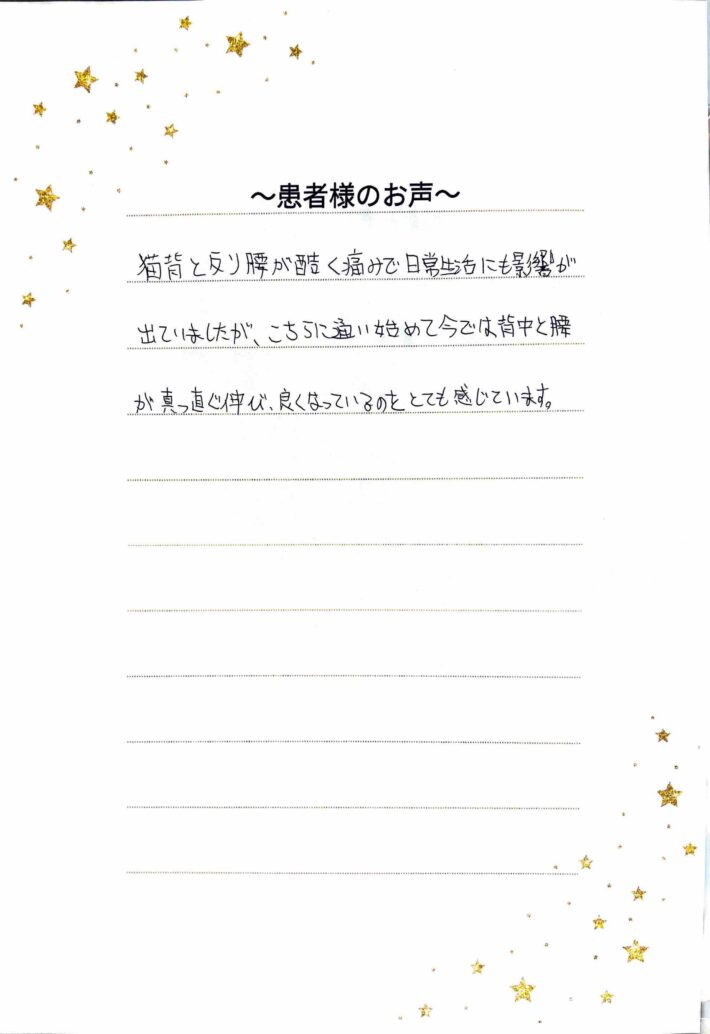 ～患者様のお声～
猫背と反り腰が酷く痛みで日常生活にも影響が
出ていましたが、こちらに通い始めて今では背中と腰
が真っ直ぐ伸び、良くなっているのをとても感じています。